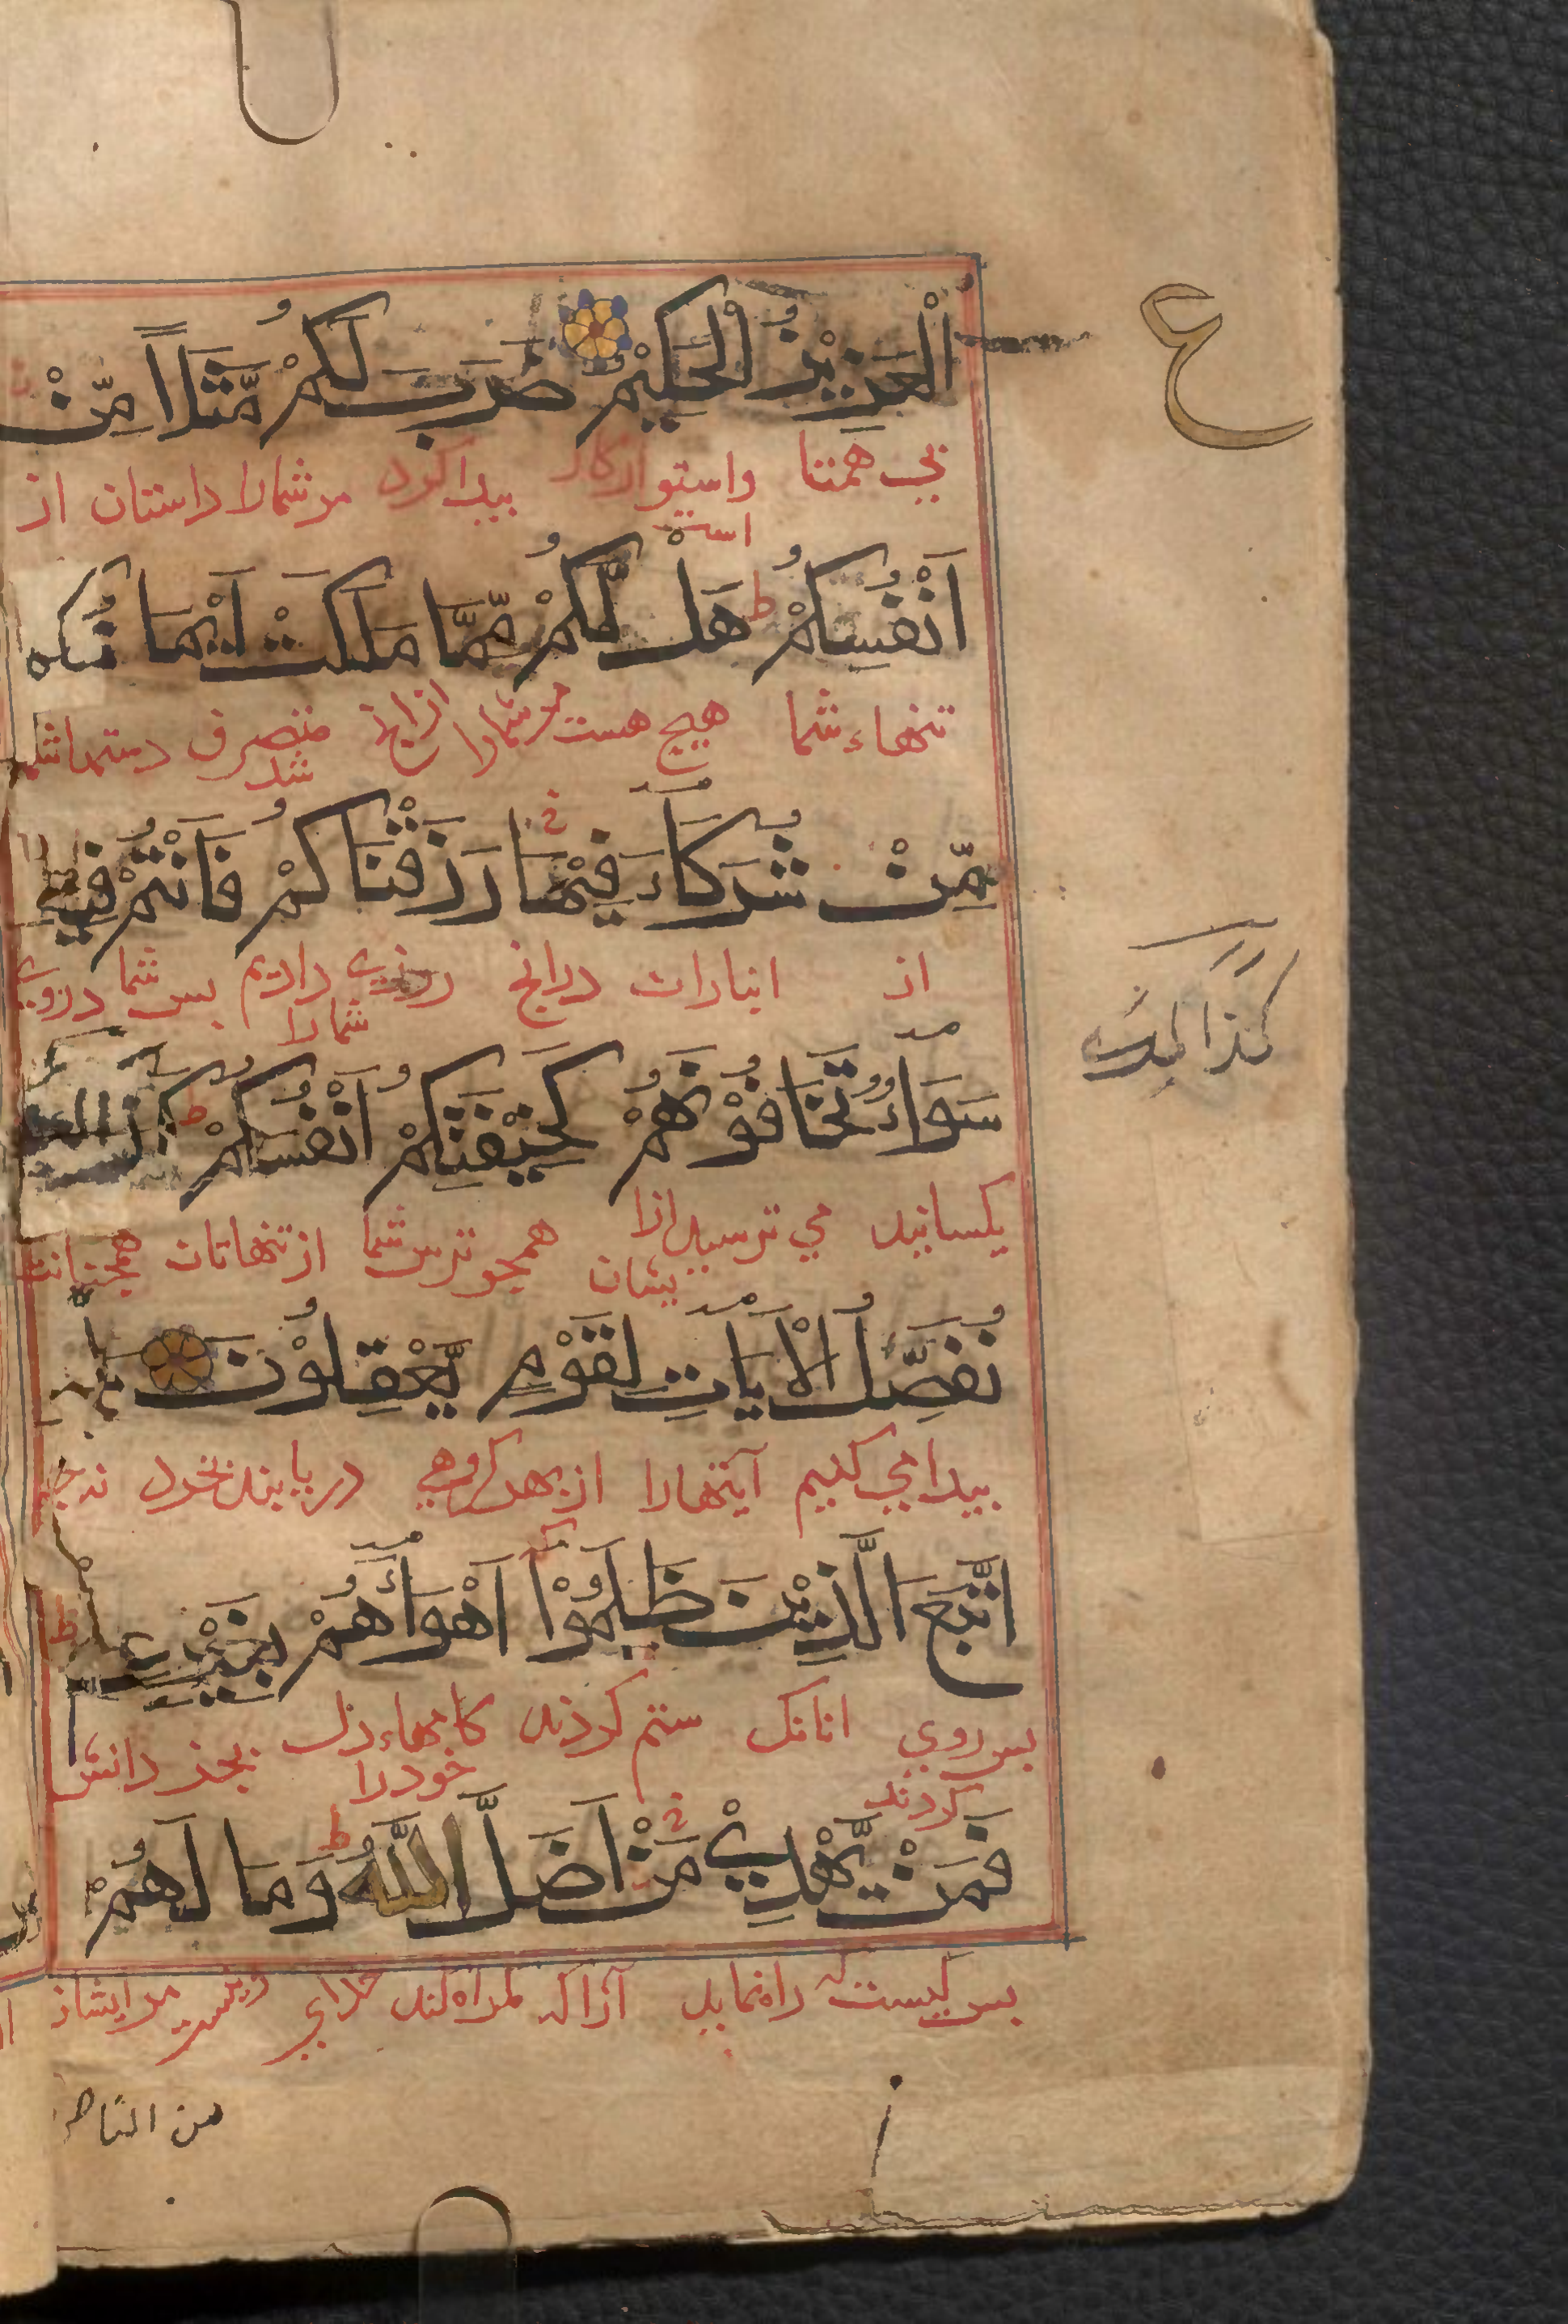 ع
الْعَزِيْزُ الْحَكِيْمُ ضَرَبَ لَكُمْ مَّثَلًا مِّنْ
بي همتا واستوار كار است بيدا كرد مر شمارا داستان از
اَنْفُسِكُمْ ط هَلْ لَّكُمْ مِّمَّا مَلَكَتْ اَيْمَانُكُمْ
تنهاء شما هيچ هست مر شمارا از انچ متصرف شد دستهاشما
مِّنْ شُرَكَآءَ فِيْمَا رَزَقْنَاكُمْ فَاَنْتُمْ فِيْهِ
از انبازان درانچ روزي داديم شمارا بس شما دروي
سَوَآءٌ تَخَافُوْنَهُمْ كَخِيْفَتِكُمْ اَنْفُسَكُمْ ط كَذٰلِكَ
كذالك
يكسانيد مي ترسيد ازا يشان همچو ترس شما از تنهاتان همچنانك
نُفَصِّلُ الْاٰيَاتِ لِقَوْمٍ يَّعْقِلُوْنَ بَلِ
بيدا مي كنيم آيتهارا از بهر گروهي دريابند بخرد نه چنين
اتَّبَعَ الَّذِيْنَ ظَلَمُوْٓا اَهْوَآءَهُمْ بِغَيْرِ عِلْمٍ ط
بس روي كردند انانك ستم كردند كامهاء دل خودرا بجز دانش
فَمَنْ يَّهْدِيْ مَنْ اَضَلَّ اللّٰهُ ط وَمَا لَهُمْ
بس كيست كه راه نمايد آنرا كه گمراه كند خداي ونيست مر ايشان
من الناصر